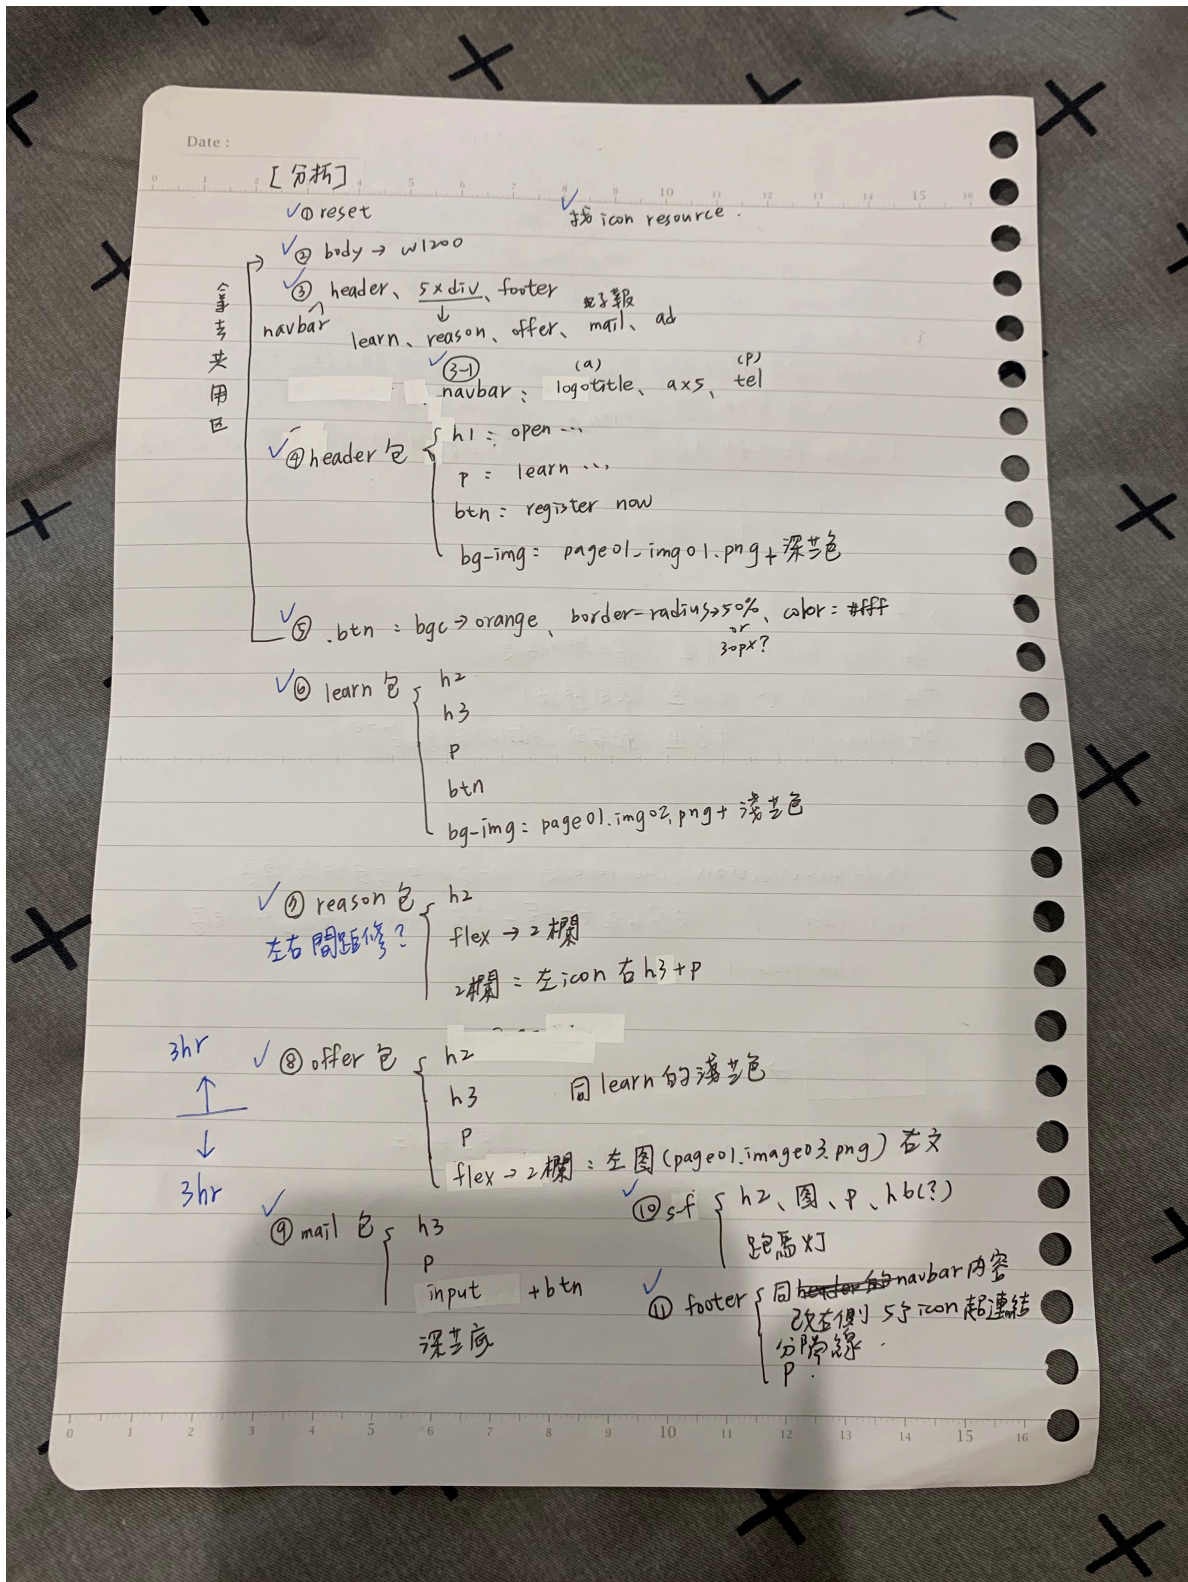 Date :
[分析]
0 1 2 4 5 6 7 8 9 10 11 12 13 14 15 16
✓① reset
✓ 找 icon resource .
✓② body → w1200
✓③ header、5×div、footer
navbar
電子報
learn、reason、offer、mail、ad
拿去共用区
✓ 3-1
(a) (p)
navbar : logotitle、a×5、tel
✓④ header 包
h1 : open ...
p : learn ...
btn : register now
bg-img : page01_img01.png + 深芒色
✓⑤ .btn : bgc → orange、border-radius→50%、color : #fff
or
30px?
✓⑥ learn 包
h2
h3
p
btn
bg-img : page01.img02.png + 淺芒色
✓⑦ reason 包
左右間距修?
h2
flex → 2欄
2欄 : 左icon 右h3+p
3hr
↑
↓
3hr
✓⑧ offer 包
h2
h3
p
flex → 2欄 : 左图(page01.image03.png) 右文
同learn的淺芒色
✓⑨ mail 包
h3
p
input +btn
深芒底
✓⑩ s-f
h2、图、p、h6(?)
跑馬灯
✓⑪ footer
同header的navbar内容
改右側 5个icon超連結
分隔線
p .
0 1 2 3 4 5 6 7 8 9 10 11 12 13 14 15 16